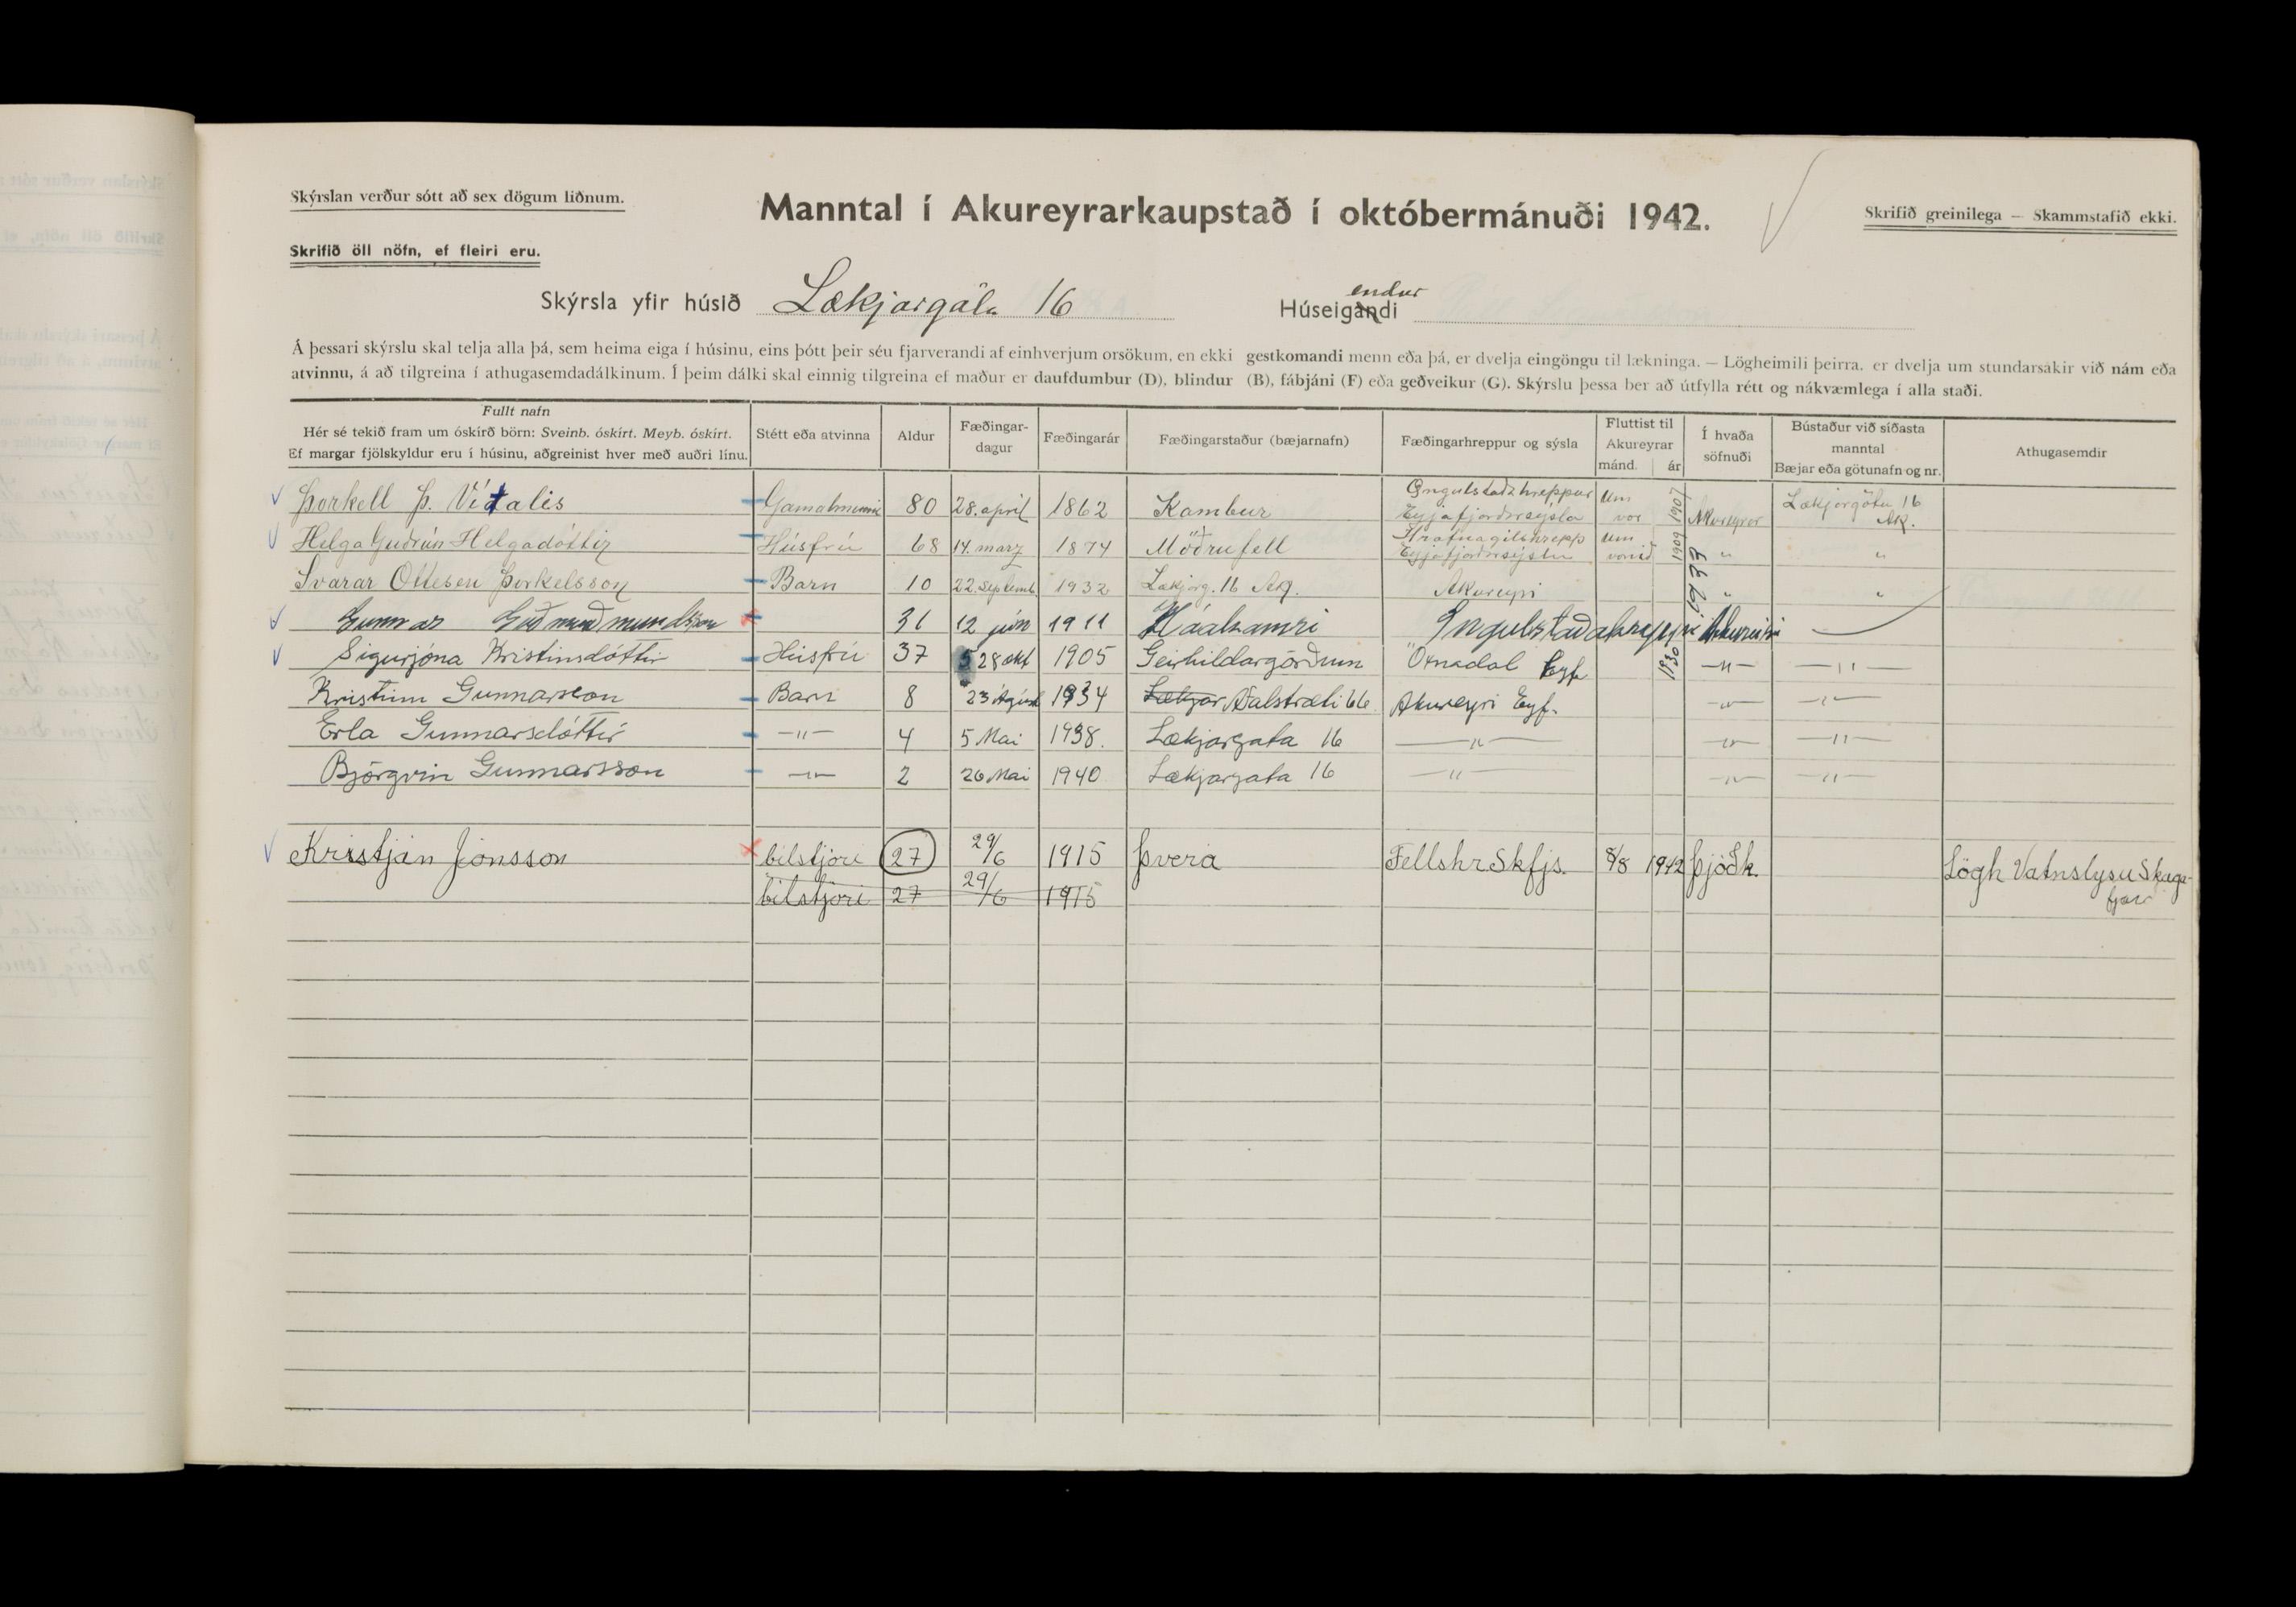 Skýrslan verður sótt að sex dögum liðnum.
Manntal í Akureyrarkaupstað í októbermánuði 1942.
Skrifið greinilega — Skammstafið ekki.
Skrifið öll nöfn, ef fleiri eru.
Skýrsla yfir húsið Lækjargata 16 Húseigandi endur
Á þessari skýrslu skal telja alla þá, sem heima eiga í húsinu, eins þótt þeir séu fjarverandi af einhverjum orsökum, en ekki gestkomandi menn eða þá, er dvelja eingöngu til lækninga. — Lögheimili þeirra, er dvelja um stundarsakir við nám eða
atvinnu, á að tilgreina í athugasemdadálkinum. Í þeim dálki skal einnig tilgreina ef maður er daufdumbur (D), blindur (B), fábjáni (F) eða geðveikur (G). Skýrslu þessa ber að útfylla rétt og nákvæmlega í alla staði.
Fullt nafn
Hér sé tekið fram um óskírð börn: Sveinb. óskírt. Meyb. óskírt.
Ef margar fjölskyldur eru í húsinu, aðgreinist hver með auðri línu.
Stétt eða atvinna
Aldur
Fæðingar-
dagur
Fæðingarár
Fæðingarstaður (bæjarnafn)
Fæðingarhreppur og sýsla
Fluttist til
Akureyrar
mánd. ár
Í hvaða
söfnuði
Bústaður við síðasta
manntal
Bæjar eða götunafn og nr.
Athugasemdir
Þorkell Þ. Vídalis Gamalmenni 80 28. apríl 1862 Kambur Öngulstaðahreppur Eyjafjarðarsýsla um vor 1907 Akureyrar Lækjargötu 16 Ak.
Helga Guðrún Helgadóttir Húsfrú 68 14. marz 1874 Möðrufell Hrafnagilshrepp Eyjafjarðarsýslu um vorið 1909 " "
Svavar Ottesen Þorkelsson Barn 10 22. Septemb. 1932 Lækjarg. 16 Ak. Akureyri " "
Gunnar Guðmundsson 31 12 jún 1911 Háahamri Öngulstaðahreppi 1933 Akureyri
Sigurjóna Kristinsdóttir Húsfrú 37 28 okt 1905 Geirhildargörðum Öxnadal Eyf 1930 —"— —"—
Kristinn Gunnarsson Barn 8 23 Ágúst 1934 Lækjar Aðalstræti 66 Akureyri Eyf. —"— —"—
Erla Gunnarsdóttir —"— 4 5 Mai 1938. Lækjargata 16 —"— —"— —"—
Björgvin Gunnarsson —"— 2 26 Mai 1940 Lækjargata 16 —"— —"— —"—
Kristján Jónsson bílstjóri 27 29/6 1915 Þverá Fellshr Skfjs. 8/8 1942 Þjóðk. Lögh Vatnsleysu Skaga-
fjar
bílstjóri 27 29/6 1915